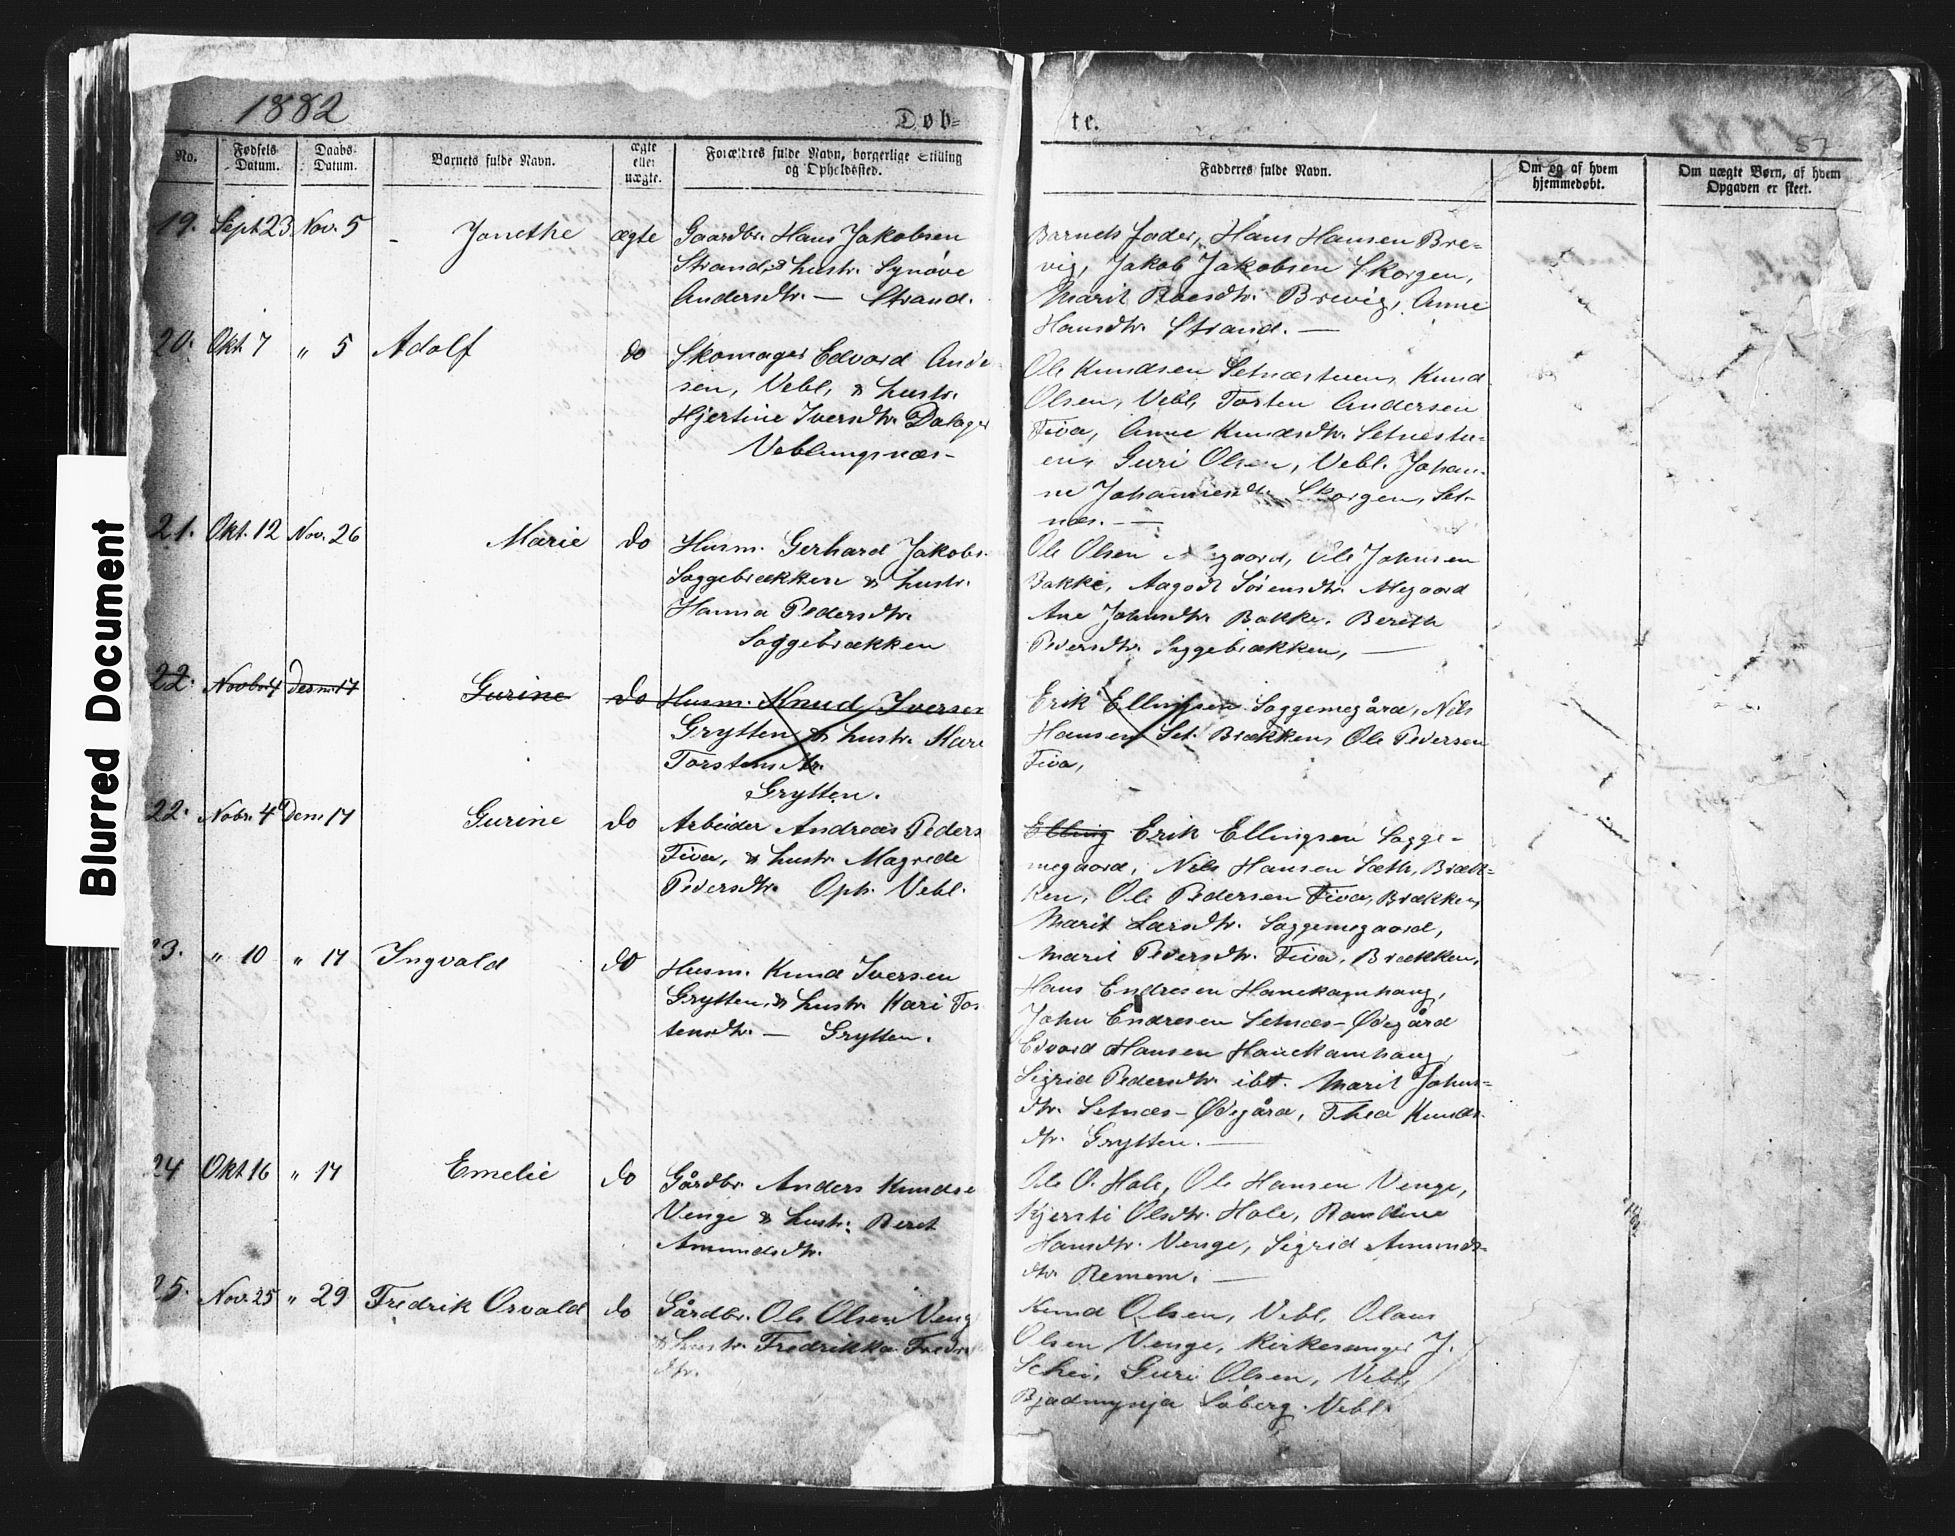 Blurred Document
1882
Døb=
te.
57
No.
Fødsels Datum.
Daabs Datum.
Barnets fulde Navn.
ægte eller uægte.
Forældres fulde Navn, borgerlige Stilling og Opholdssted.
Fadderes fulde Navn.
Om og af hvem hjemmedøbt.
Om uægte Børn, af hvem Opgaven er skeet.
19. Sept 23 Nov. 5 - Jonethe ægte
Gaardbr. Hans Jakobsen
Strand, & hustr. Synøve
Andersdtr. — Strand.
Barnets Fader, Hans Hansen Bre-
vig, Jakob Jakobsen Skorgen,
Marit Roesdtr. Brevig, Anne
Hansdtr. Strand. —
20. Okt. 7 " 5 Adolf do
Skomager Edvard Ander
sen, Vebl, & hustr.
Hjertine Iversdtr. Dalager
Veblungsnæs-
Ole Knudsen Setnæstuen, Knud
Olsen, Vebl, Torsten Andersen
Fiva, Anne Knudsdtr. Setnæstu-
en, Guri Olsen, Vebl. Johan-
ne Johannesdtr. Skorgen, Set-
næs. —
21. Okt. 12 Nov. 26 Marie do
Husm. Gerhard Jakobs.
Soggebrækken & hustr.
Hanna Pedersdtr.
Soggebrækken
Ole Olsen Megaard, Ole Johnsen
Bakke, Aagodt Sørensdtr. Megaard
Ane Johnsdtr. Bakke. Bereth
Pedersdtr. Soggebrækken, —
22. Novbr. 4 Decmr. 17 Gurine do
Husm. Knud Iversen
Grytten & hustr. Kari
Torstensdtr.
Grytten.
Erik Ellingsen Soggemegård, Nils
Hansen Set. Brækken, Ole Pedersen
Fiva,
22. Nobr. 4 Decm 17 Gurine do
Arbeider Andreas Peders
Fiva, & hustr. Magrede
Pedersdtr. Oph. Vebl.
Elling Erik Ellingsen Sogge-
megaard, Nils Hansen Sæth, Bræk-
ken, Ole Pedersen Fiva, Brækken,
Marit Larsdtr. Soggemegaard,
Marit Pedersdtr. Fiva, Brækken,
23. " 10 " 17 Ingvald do
Husm. Knud Iversen
Grytten, & hustr. Kari Tor
stensdtr. — Grytten.
Hans Endresen Hanekamhaug,
John Endresen Setnæs-Ødegård
Edvard Hansen Hanekamhaug,
Sigrid Pedersdtr. ibt. Marit Johns-
dtr. Setnæs-Ødegård, Thea Knuds-
dtr. Grytten. —
24 Okt 16 " 17 Emelie do
Gårdbr. Anders Knudse
Venge & hustr. Beret
Amundsdtr.
Ole O. Hole, Ole Hansen Venge,
Kjersti Olsdtr. Hole, Randine
Hansdtr. Venge, Sigrid Amunds-
dtr. Remem. —
25. Nov. 25 " 29 Fredrik Osvald do
Gårdbr. Ole Olsen Veng
& hustr. Fredrikka Fredr
dtr.
Knud Olsen, Vebl, Olaus
Olsen Venge, Kirkesanger J.
Schei, Guri Olsen, Vebl,
Bjadmynja Søberg. Vebl.